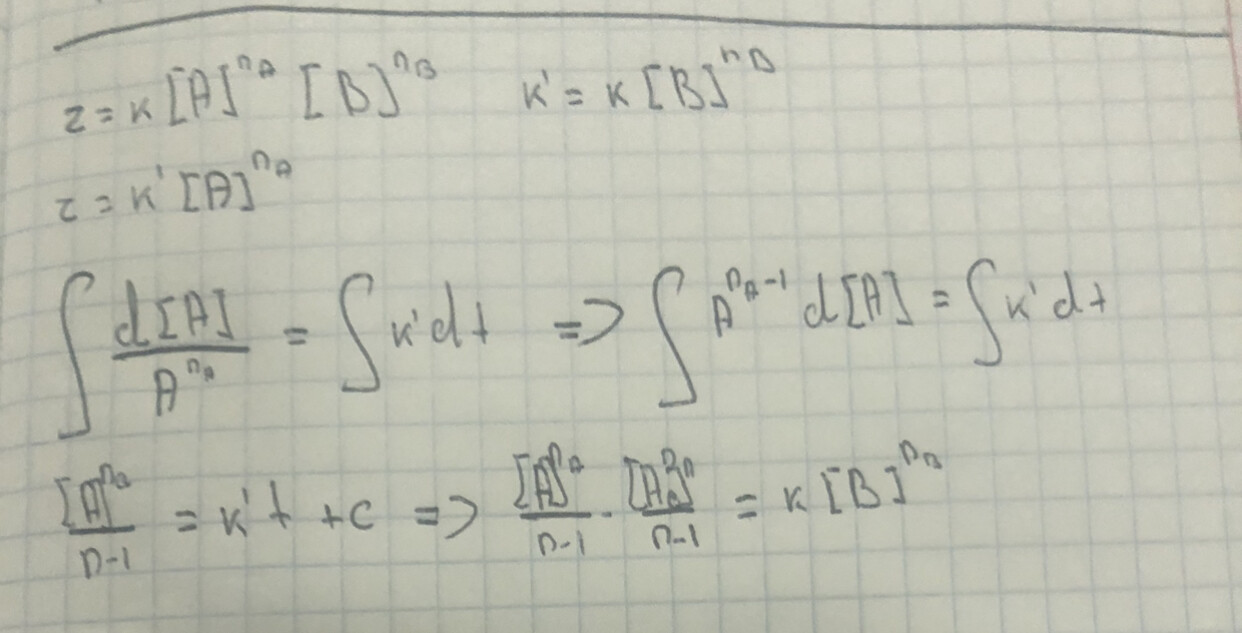 r = k [A]^{n_A} [B]^{n_B} k' = k [B]^{n_B}
r = k' [A]^{n_A}
∫ d[A] / A^{n_A} = ∫ k' dt => ∫ A^{n_A-1} d[A] = ∫ k' dt
[A]^{n_A} / n-1 = k't + c => [A]^{n_A} / n-1 · / n-1 = k [B]^{n_B}